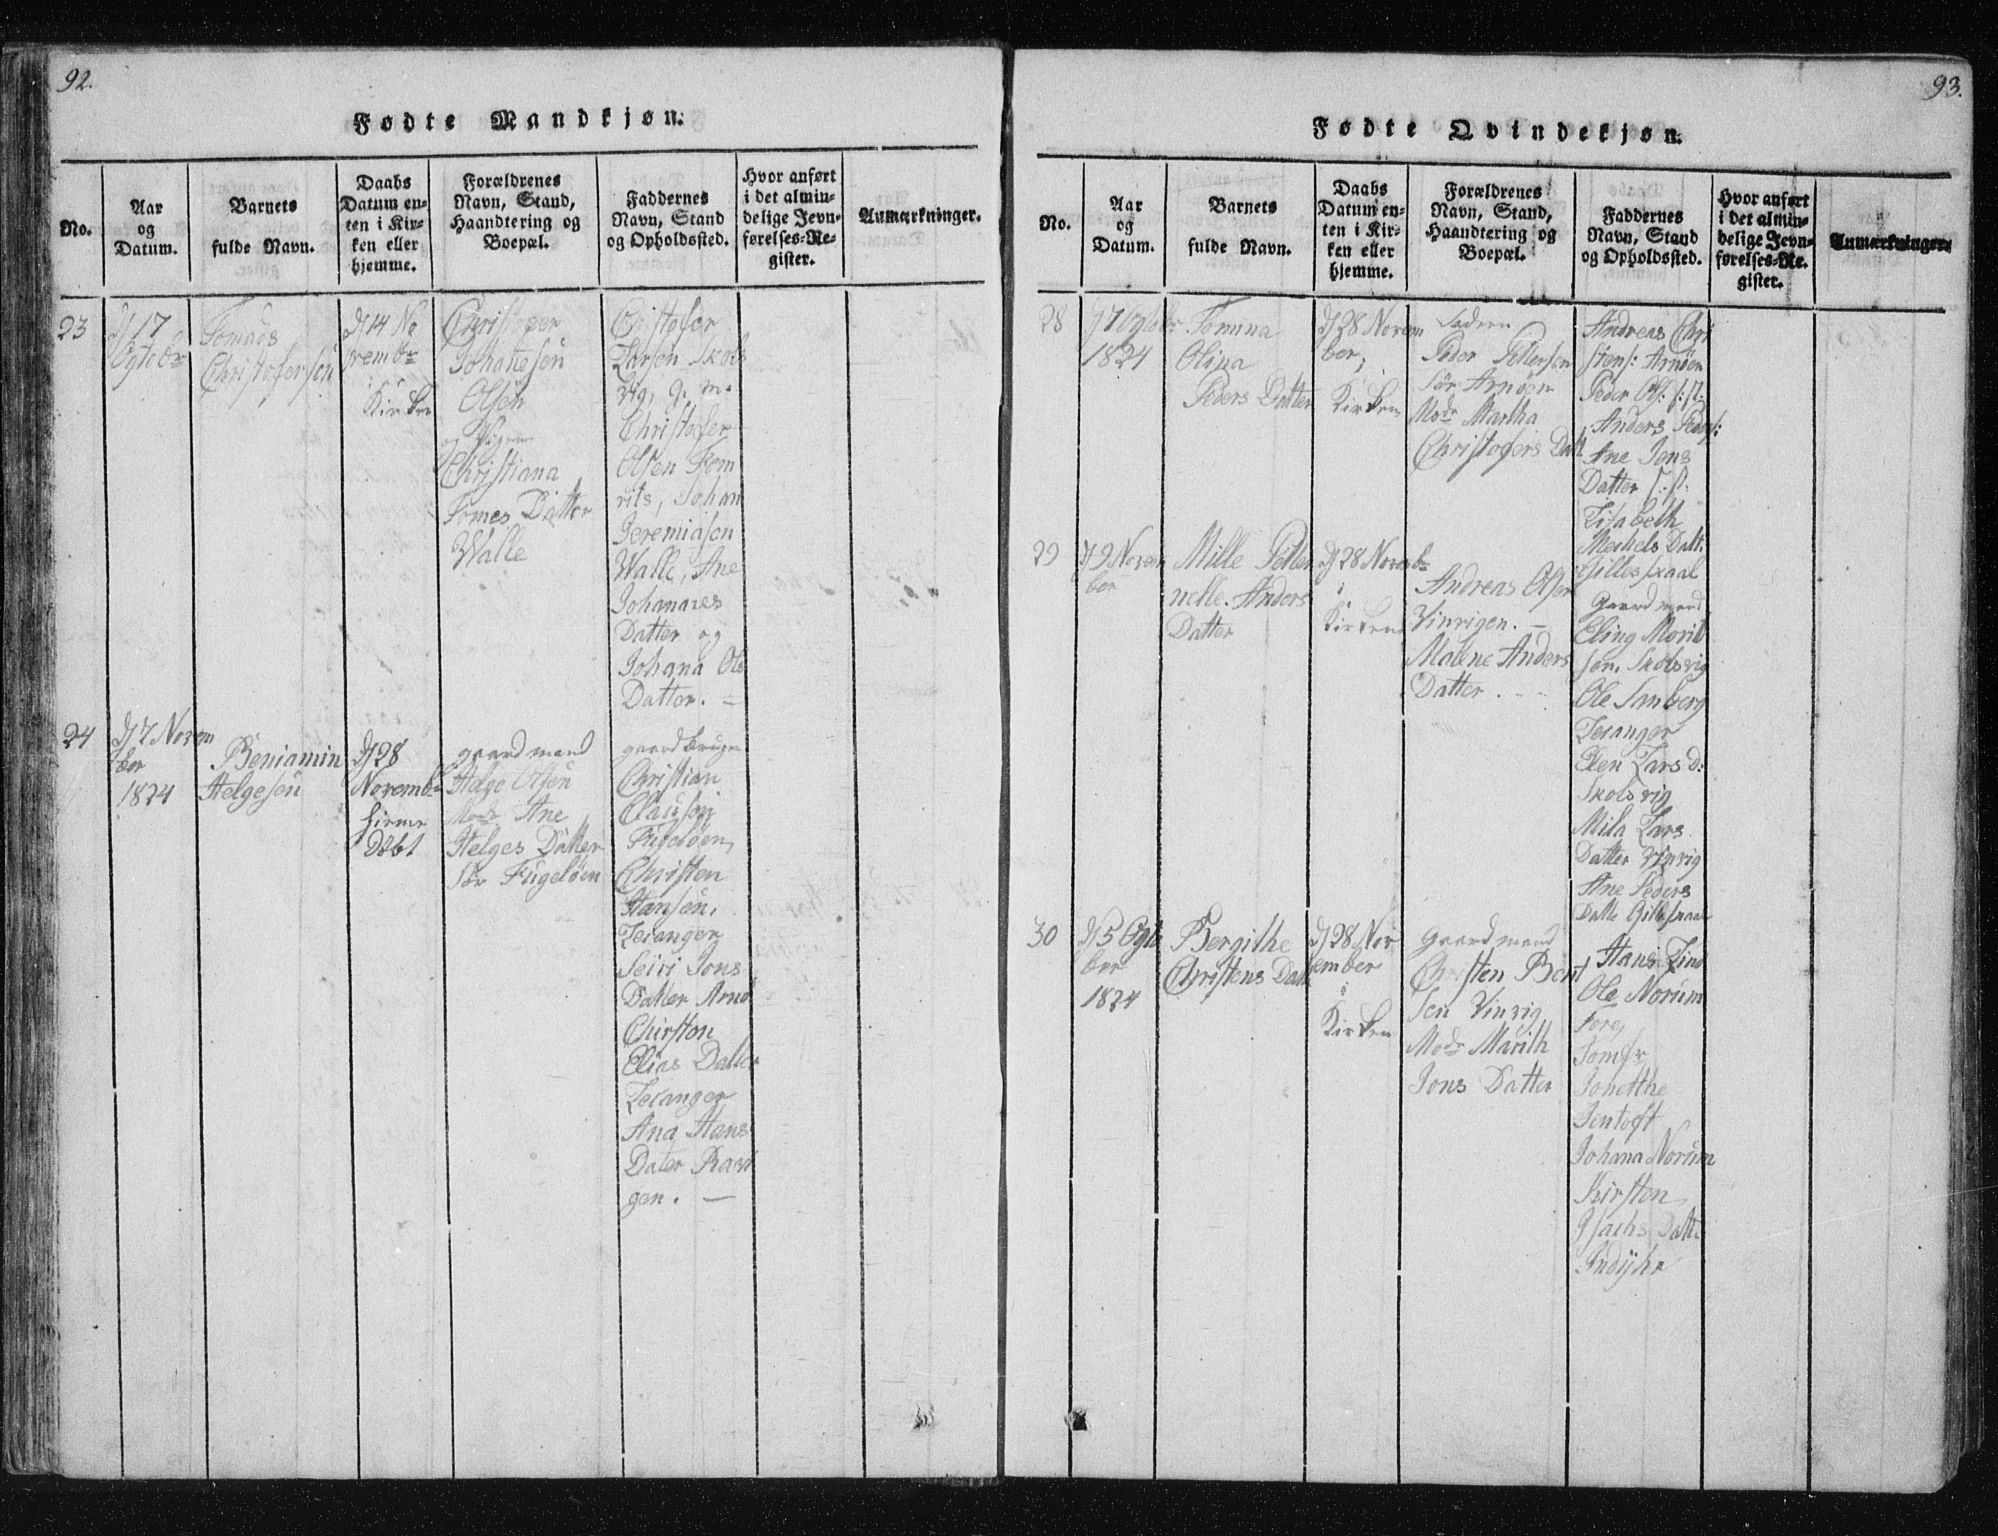 92.
Fødte Mandkjøn.
No.
Aar
og
Datum.
Barnets
fulde Navn.
Daabs
Datum en-
ten i Kir-
ken eller
hjemme.
Forældrenes
Navn, Stand,
Haandtering og
Boepæl.
Faddernes
Navn, Stand
og Opholdssted.
Hvor anført
i det almin-
delige Jevn-
førelses-Re-
gister.
Anmærkninger.
23
d 17
Ogtobr
Tomads
Christofersen
d 14 No
vembr
i
Kirken
Christofer
Johannesen
Olsen
og Pigen
Christiana
Tomes Datter
Walle
Cristofer
Larsen Skols
vig, g. m.
Christofer
Olsen Fem
rits, Johan
Jeremiasen
Walle, Ane
Johannes
Datter og
Johana Ole
Datter. —
24
d 7 Novem
ber
1824
Beniamin
Helgesen
d 28
Novembr
hieme
Døbt
gaardmand
Helge Olsen
Modr Ane
Helges Datter
Sør Fugeløen
gaardbruger
Christian
Clausen
Fugeløen,
Christen
Hansen,
Leranger
Seiri Jons
Datter Arnø
Chirsten
Elias Datter
Leranger
Ana Hans
Dater
gen. —
93.
Fødte Qvindekjøn.
No.
Aar
og
Datum.
Barnets
fulde Navn.
Daabs
Datum en-
ten i Kir-
ken eller
hjemme.
Forældrenes
Navn, Stand,
Haandtering og
Boepæl.
Faddernes
Navn, Stand
og Opholdssted.
Hvor anført
i det almin-
delige Jevn-
førelses-Re-
gister.
Anmærkninger.
28
d 7 Ogtober
1824
Tomina
Olina
Peders Datter
d 28 Novem
ber,
i
Kirken
Faderen
Peder Pettersen
Sør Arnøen
Modr Martha
Christofers Datt
Andreas Chri
stens: Arnøen
Peder Ols: s: st:
Anders Peders:
Ane Jens
Datter s: st:
Lisabeth
Mechels Datt.
Gillesskaal
29
d 9 Novem
ber
Mille Petter
nelle. Anders
Datter
d 28 Novembr
i
Kirken
Andreas Olsen
Vinvigen. —
Malene Anders
Datter. - -
Gaardmand
Eling Morit
sen. Skolsvig
Ole Sanberg
Leranger
Elen Lars d:
Skolsvig
Mila Lars
Datter Vinvig
Ane Peders
Datte Gillesskaal
30
d 5 Ogto
ber
1824
Bergithe
Christens Datter
d 28 Nov
ember
i
Kirken
Gaardmand
Christen Bent
sen Vinvig
Modr Marith
Jons Datter
Hans Lind
Ole Norum
Fore
Jomfr
Jonethe
Jentoft
Johana Norum
Kirsten
Isachs Datt.